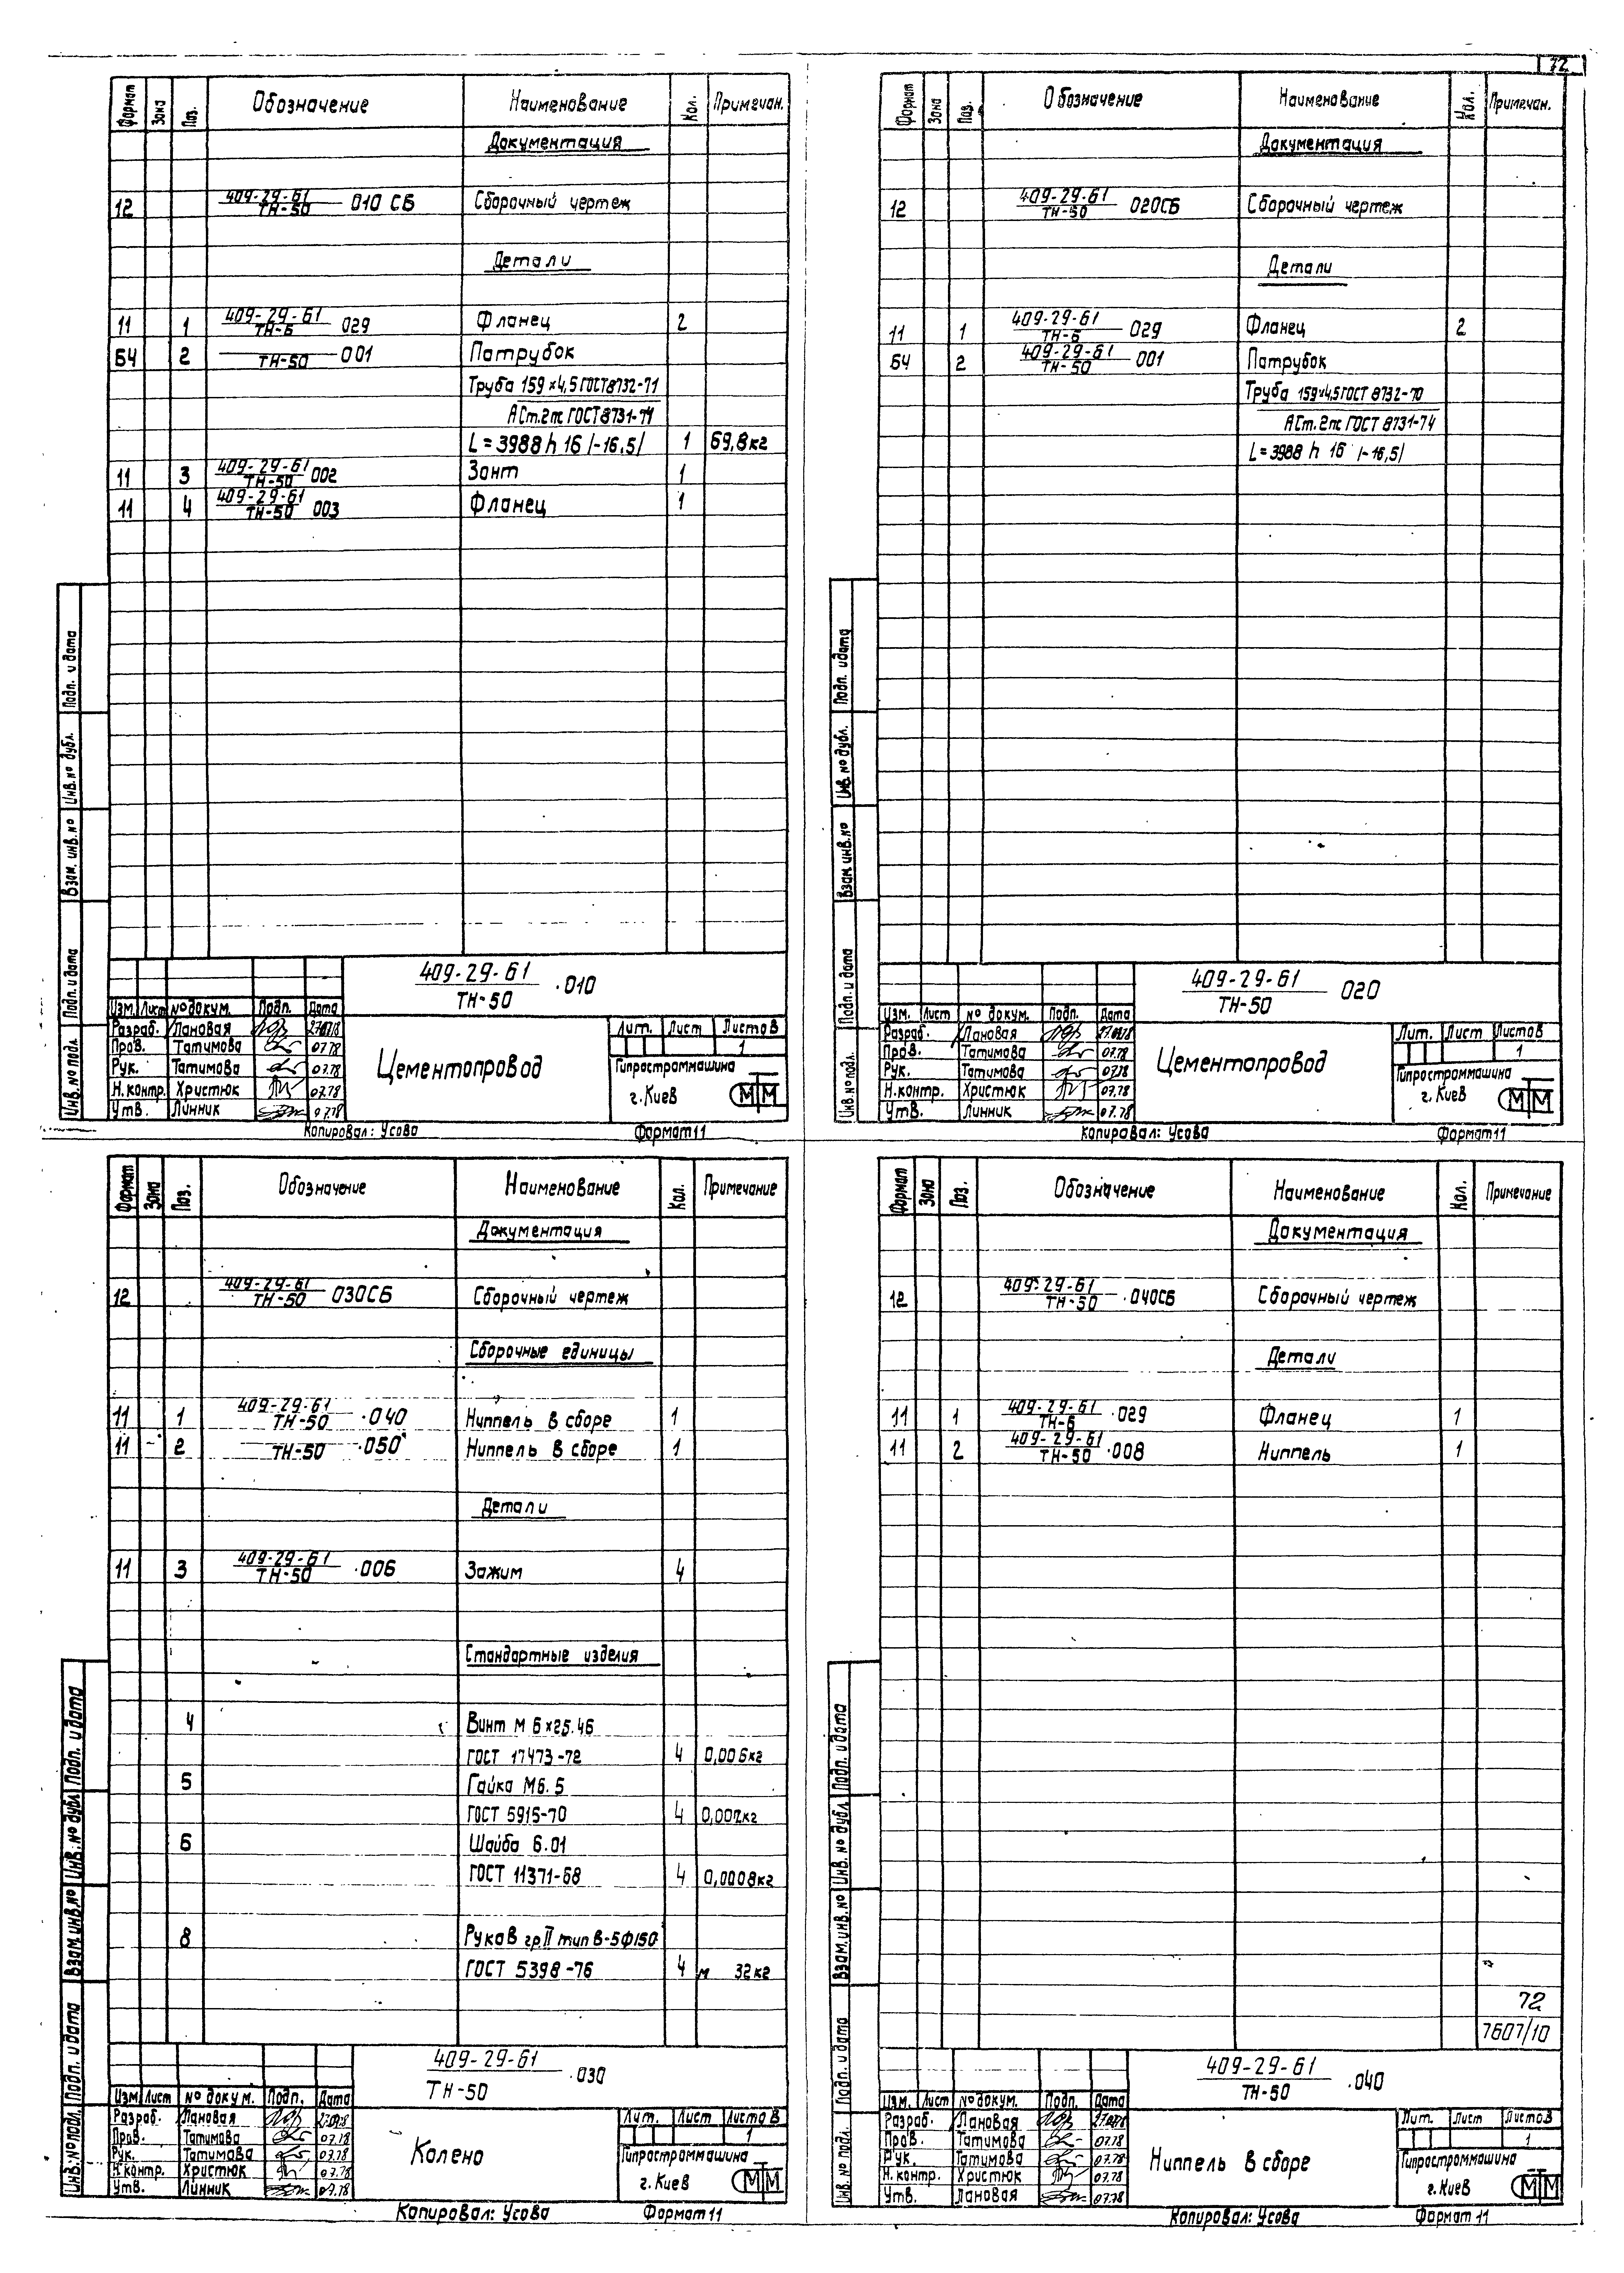 72
Формат Зона Поз. Обозначение Наименование Кол. Примечан.
Документация
12 409-29-61/ТН-50 010 СБ Сборочный чертеж
Детали
11 1 409-29-61/ТН-6 029 Фланец 2
БЧ 2 ТН-50 001 Патрубок
Труба 159×4,5 ГОСТ 8732-71
АСт.2пс ГОСТ 8731-74
L=3988 h 16 /-16,5/ 1 69,8кг
11 3 409-29-61/ТН-50 002 Зонт 1
11 4 409-29-61/ТН-50 003 Фланец 1
Подп. и дата
Инв.№ дубл.
Взам. инв.№
Подп. и дата
Инв.№ подл.
409-29-61/ТН-50 .010
Изм. Лист № докум. Подп. Дата
Разраб. Лановая 27.07.78
Пров. Татимова 07.78
Рук. Татимова 07.78
Н.контр. Христюк 07.78
Утв. Линник 07.78
Цементопровод
Лит. Лист Листов
1
Гипростроммашина
г.Киев
Копировал: Усова Формат 11
Формат Зона Поз. Обозначение Наименование Кол. Примечан.
Документация
12 409-29-61/ТН-50 020СБ Сборочный чертеж
Детали
11 1 409-29-61/ТН-6 029 Фланец 2
БЧ 2 409-29-61/ТН-50 001 Патрубок
Труба 159×4,5 ГОСТ 8732-70
АСт.2пс ГОСТ 8731-74
L=3988 h 16 /-16,5/
Подп. и дата
Инв. № дубл.
Взам. инв.№
Подп. и дата
Инв. № подл.
409-29-61/ТН-50 020
Изм. Лист № докум. Подп. Дата
Разраб. Лановая 27.07.78
Пров. Татимова 07.78
Рук. Татимова 07.78
Н.контр. Христюк 07.78
Утв. Линник 07.78
Цементопровод
Лит. Лист Листов
1
Гипростроммашина
г.Киев
Копировал: Усова Формат 11
Формат Зона Поз. Обозначение Наименование Кол. Примечание
Документация
12 409-29-61/ТН-50 030СБ Сборочный чертеж
Сборочные единицы
11 1 409-29-61/ТН-50 .040 Ниппель в сборе 1
11 2 ТН-50 .050 Ниппель в сборе 1
Детали
11 3 409-29-61/ТН-50 .006 Зажим 4
Стандартные изделия
4 Винт М 6×25.46
ГОСТ 17473-72 4 0,006кг
5 Гайка М6.5
ГОСТ 5915-70 4 0,002кг
6 Шайба 6.01
ГОСТ 11371-68 4 0,0008кг
8 Рукав гр.II тип В-5Ф150
ГОСТ 5398-76 4 м 32кг
Подп. и дата
Инв. № дубл.
Взам. инв.№
Подп. и дата
Инв. № подл.
409-29-61/ТН-50 .030
Изм. Лист № докум. Подп. Дата
Разраб. Лановая 27.07.78
Пров. Татимова 07.78
Рук. Татимова 07.78
Н.контр. Христюк 07.78
Утв. Линник 07.78
Колено
Лит. Лист Листов
1
Гипростроммашина
г.Киев
Копировал: Усова Формат 11
Формат Зона Поз. Обозначение Наименование Кол. Примечание
Документация
12 409-29-61/ТН-50 .040СБ Сборочный чертеж
Детали
11 1 409-29-61/ТН-6 .029 Фланец 1
11 2 409-29-61/ТН-50 .008 Ниппель 1
72
7607/10
Подп. и дата
Инв. № дубл
Взам. инв. №
Подп. и дата
Инв. № подл.
409-29-61/ТН-50 .040
Изм. Лист № докум. Подп. Дата
Разраб. Лановая 27.07.78
Пров. Татимова 07.78
Рук. Татимова 07.78
Н.контр. Христюк 07.78
Утв. Лановая 07.78
Ниппель в сборе
Лит. Лист Листов
1
Гипростроммашина
г.Киев
Копировал: Усова Формат 11